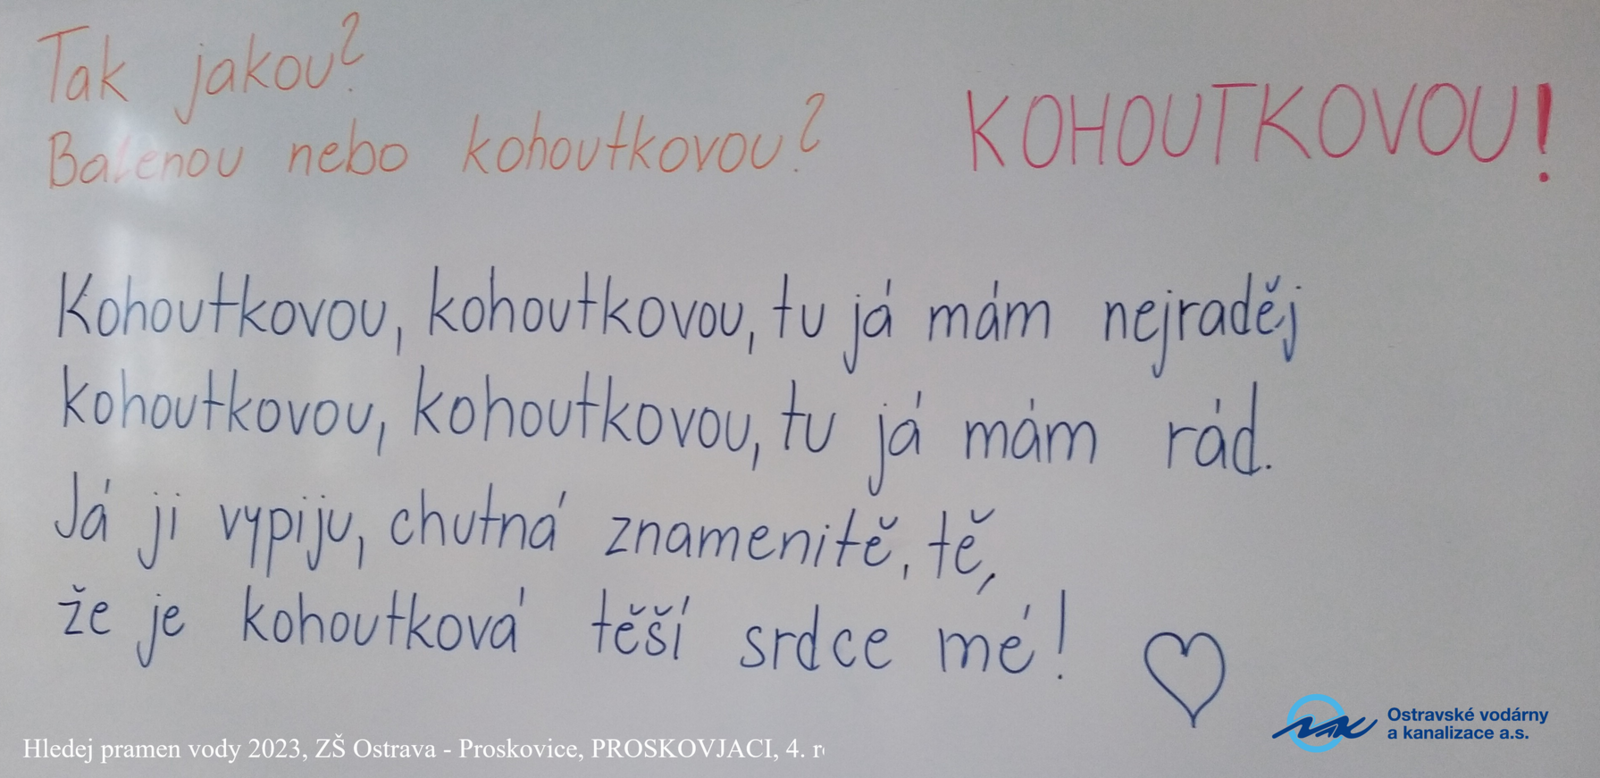 Tak jakou?
Balenou nebo kohoutkovou?
KOHOUTKOVOU!
Kohoutkovou, kohoutkovou, tu já mám nejraděj
kohoutkovou, kohoutkovou, tu já mám rád.
Já ji vypiju, chutná znamenitě, tě,
že je kohoutková těší srdce mé!
Ostravské vodárny
a kanalizace a.s.
Hledej pramen vody 2023, ZŠ Ostrava - Proskovice, PROSKOVJACI, 4. r